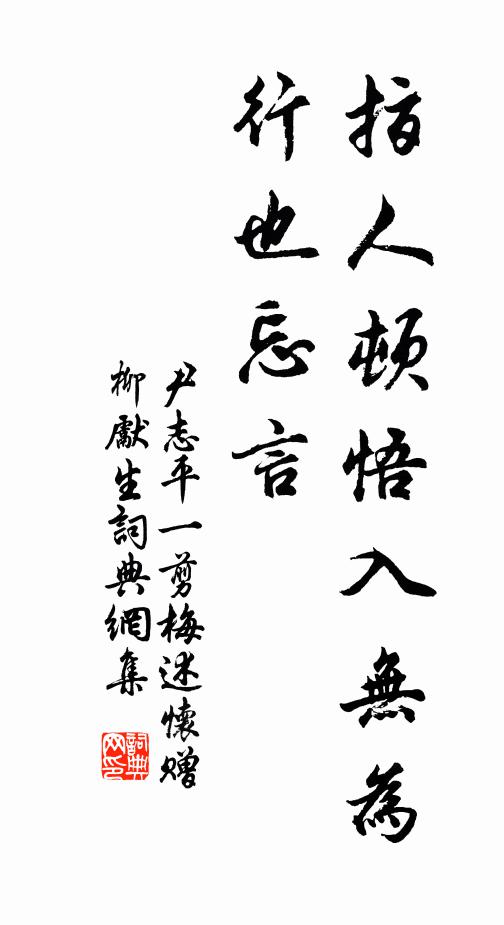 指人頓悟入無為
行也忘言
尹志平一剪梅述懷贈
柳獻生詞典網集
詞典
网印